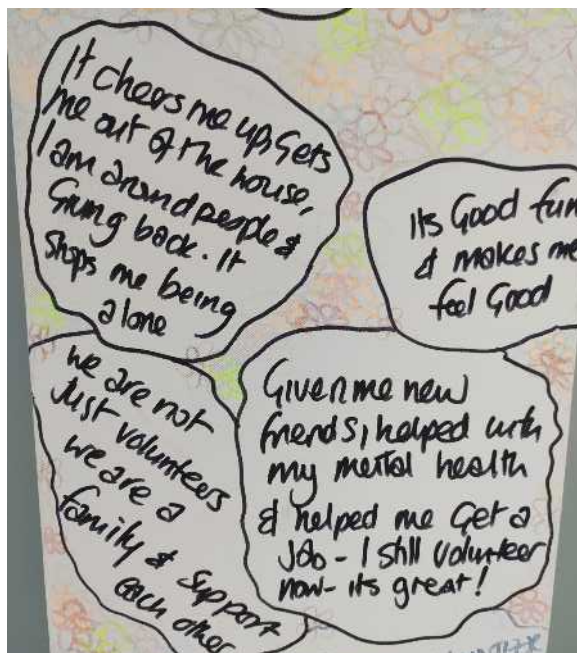 It cheers me up, Gets
me out of the house,
I am around people &
Giving back. It
stops me being
alone
Its Good fun
& makes me
feel Good
we are not
Just volunteers
we are a
family & Support
each other
Given me new
friends, helped with
my mental health
& helped me Get a
Job - I still volunteer
now - its great!